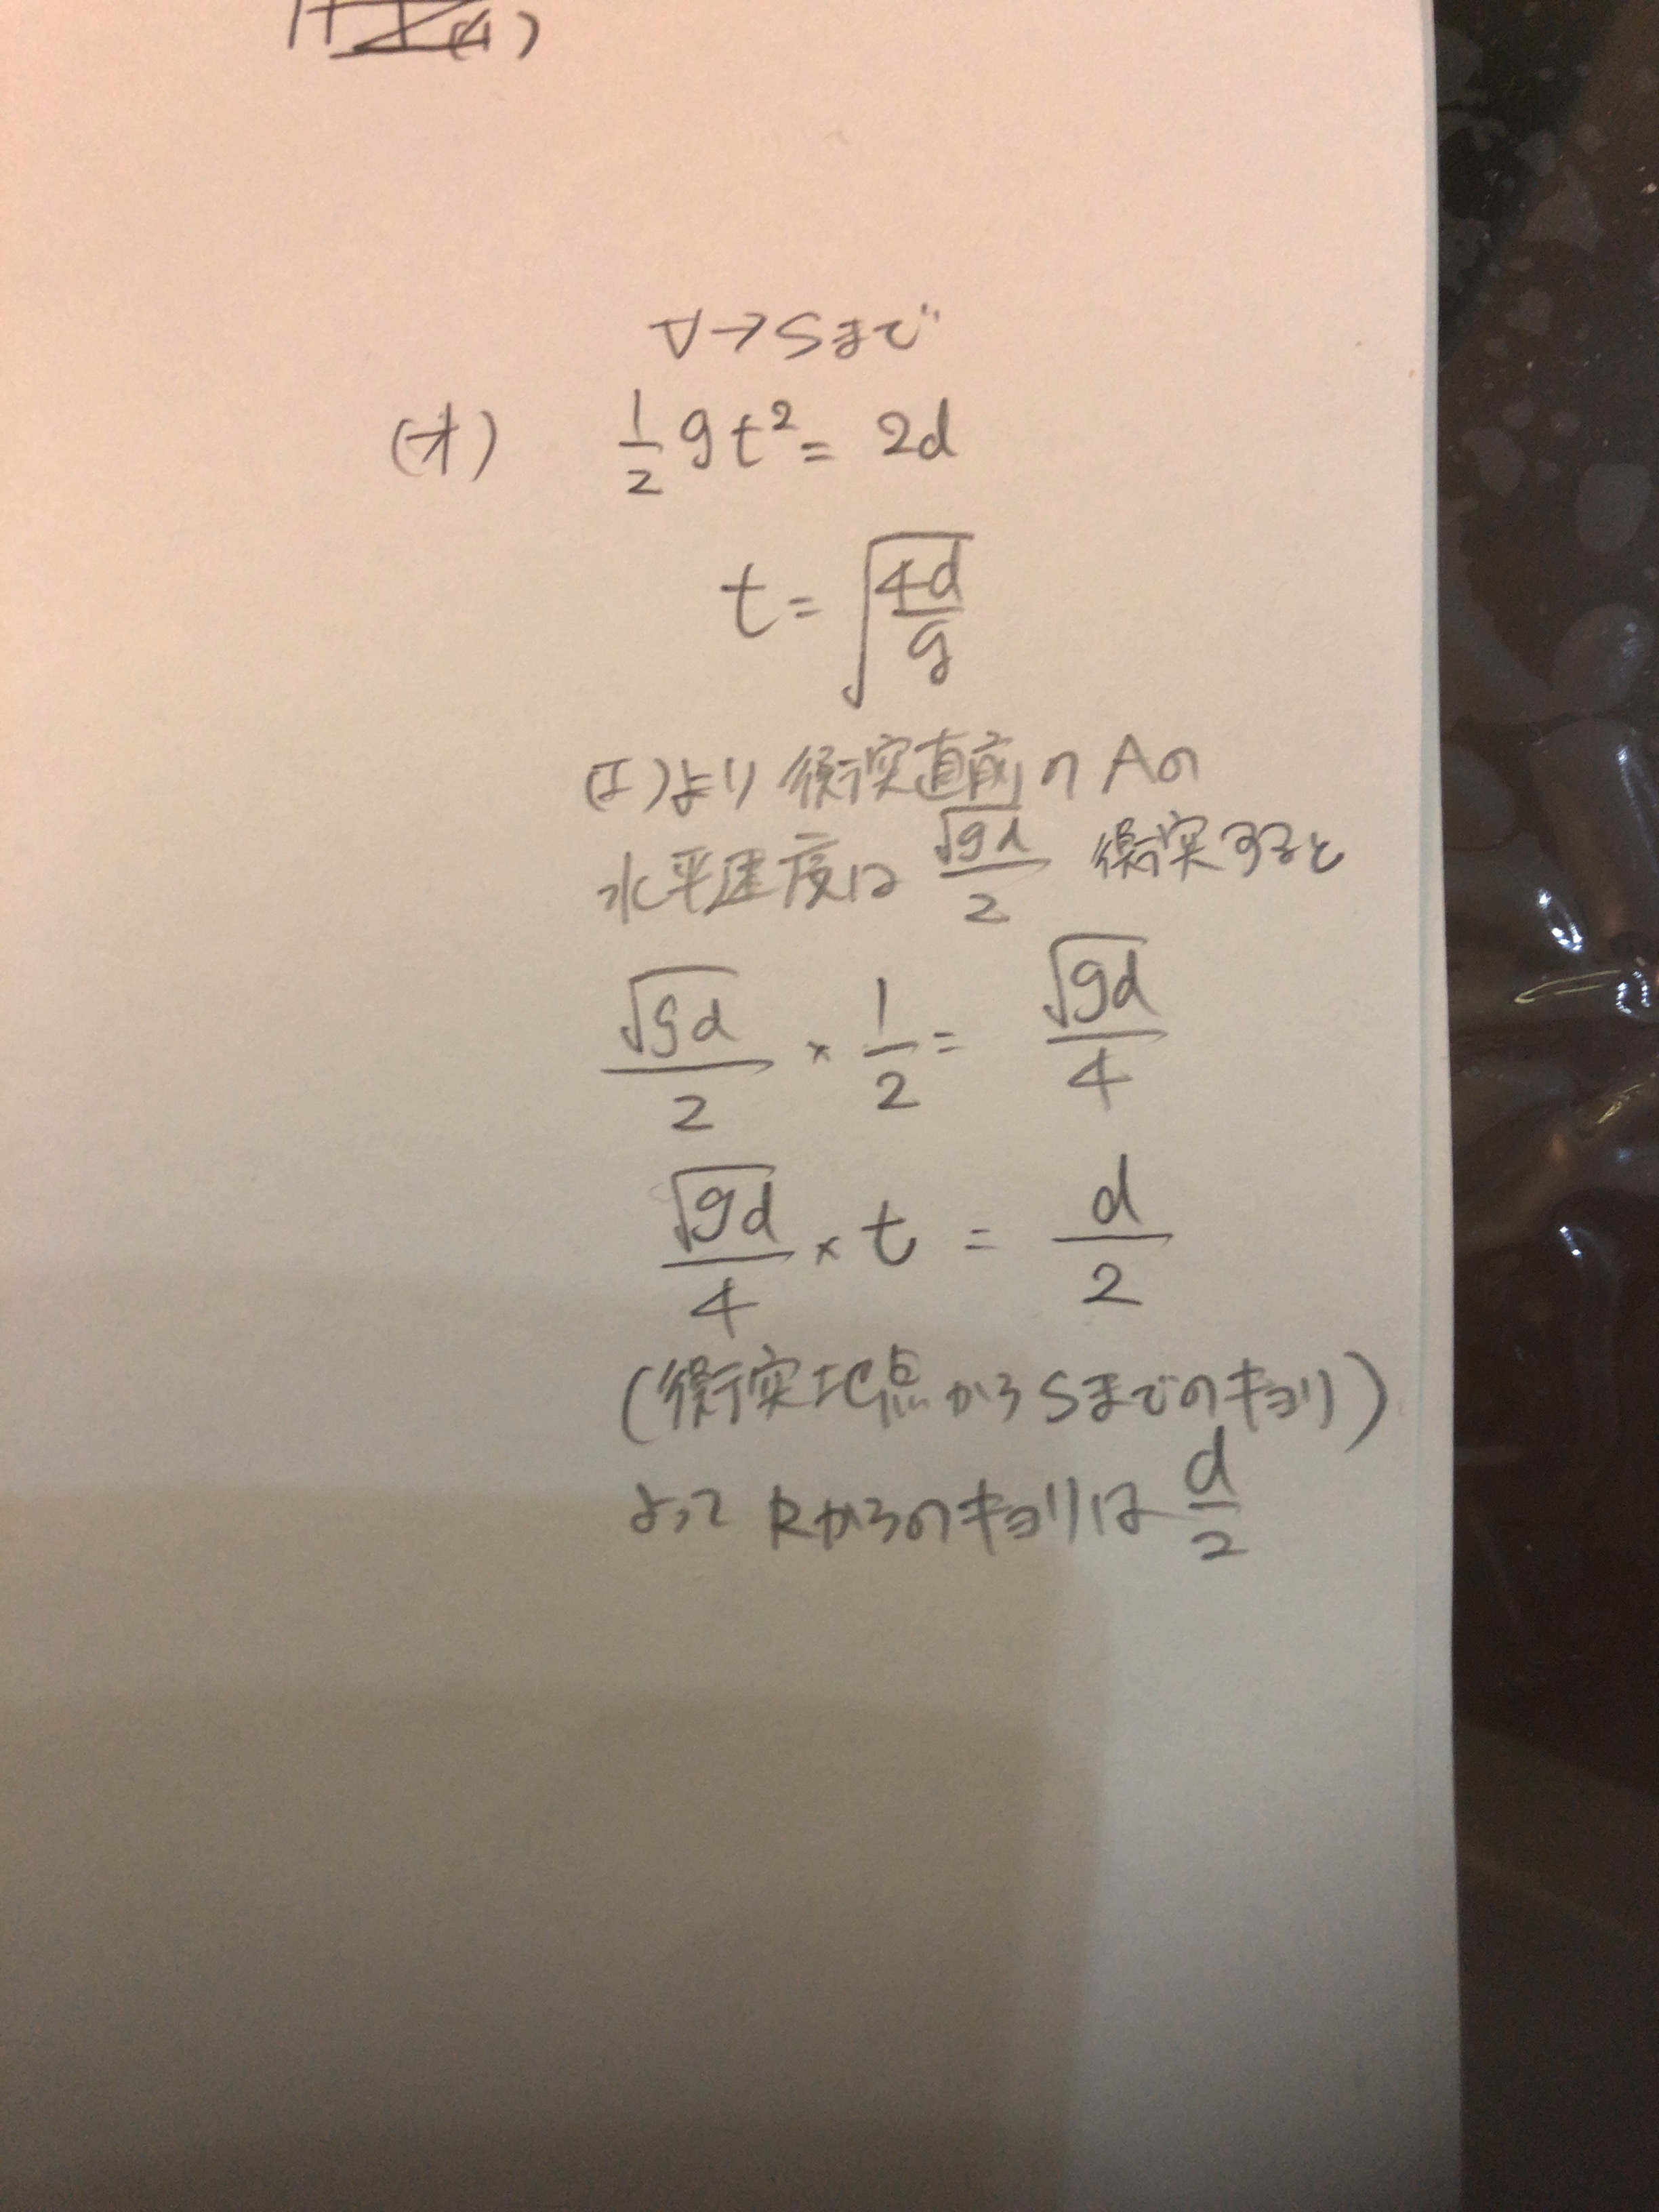 ▽→Sまで
(オ) 1/2 gt² = 2d
t = √(4d/g)
(エ)より 衝突直前の Aの
水平速度は √gd/2 衝突すると
√gd/2 × 1/2 = √gd/4
√gd/4 × t = d/2
(衝突地点からSまでのキョリ)
よって RからのキョリはLd/2